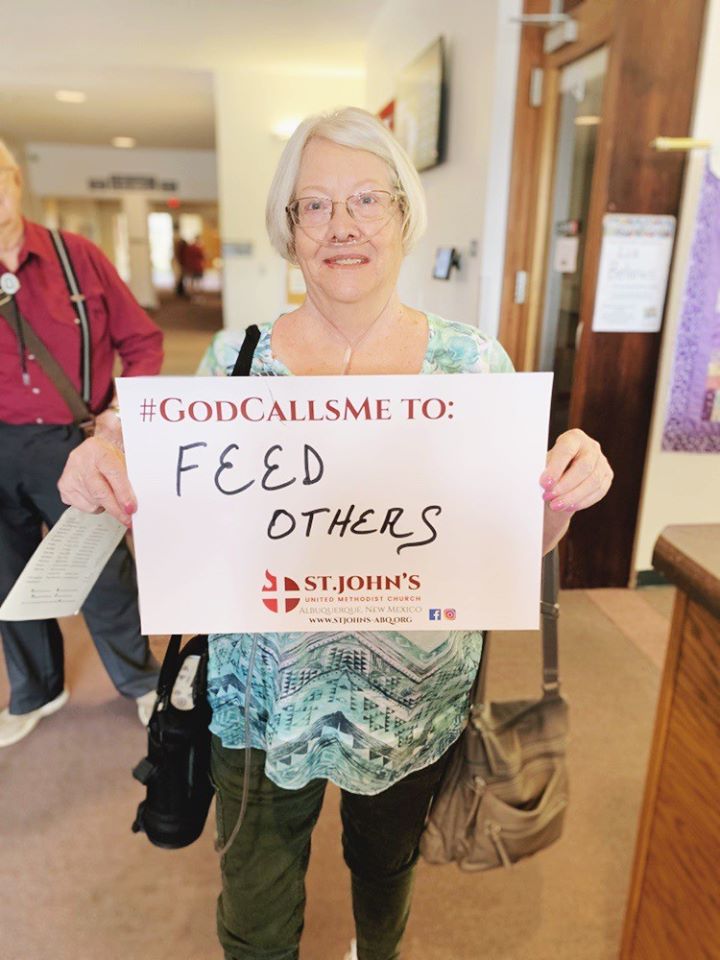 #GODCALLSME TO:
FEED
OTHERS
ST.JOHN'S
UNITED METHODIST CHURCH
ALBUQUERQUE, NEW MEXICO
WWW.STJOHNS-ABQ.ORG